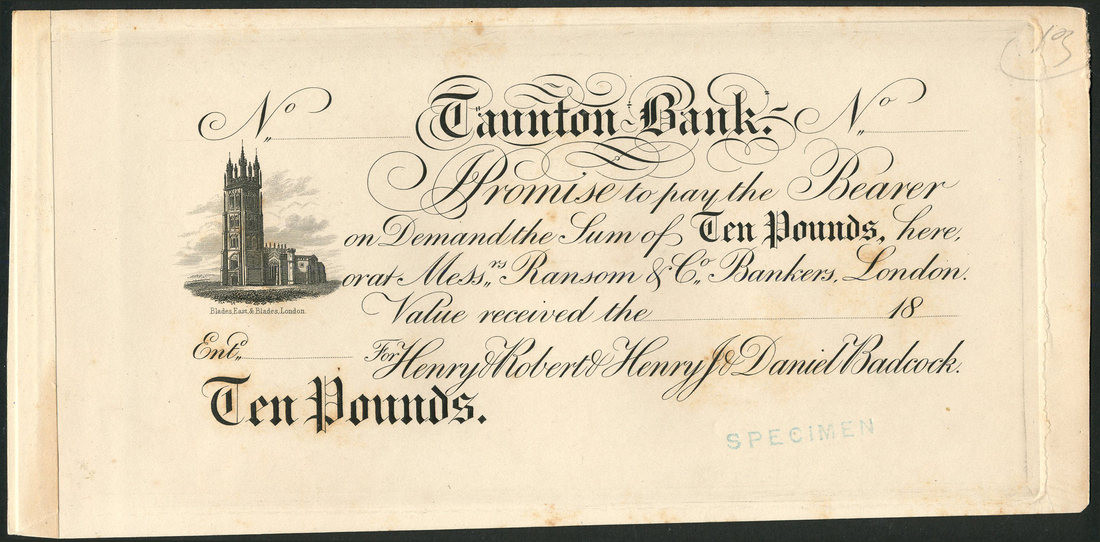 193
No Taunton Bank. No
I Promise to pay the Bearer
on Demand the Sum of Ten Pounds, here,
or at Messrs Ransom & Co. Bankers, London.
Blades, East, & Blades, London.
Value received the 18
Entd For Henry & Robert & Henry J & Daniel Badcock.
Ten Pounds.
SPECIMEN